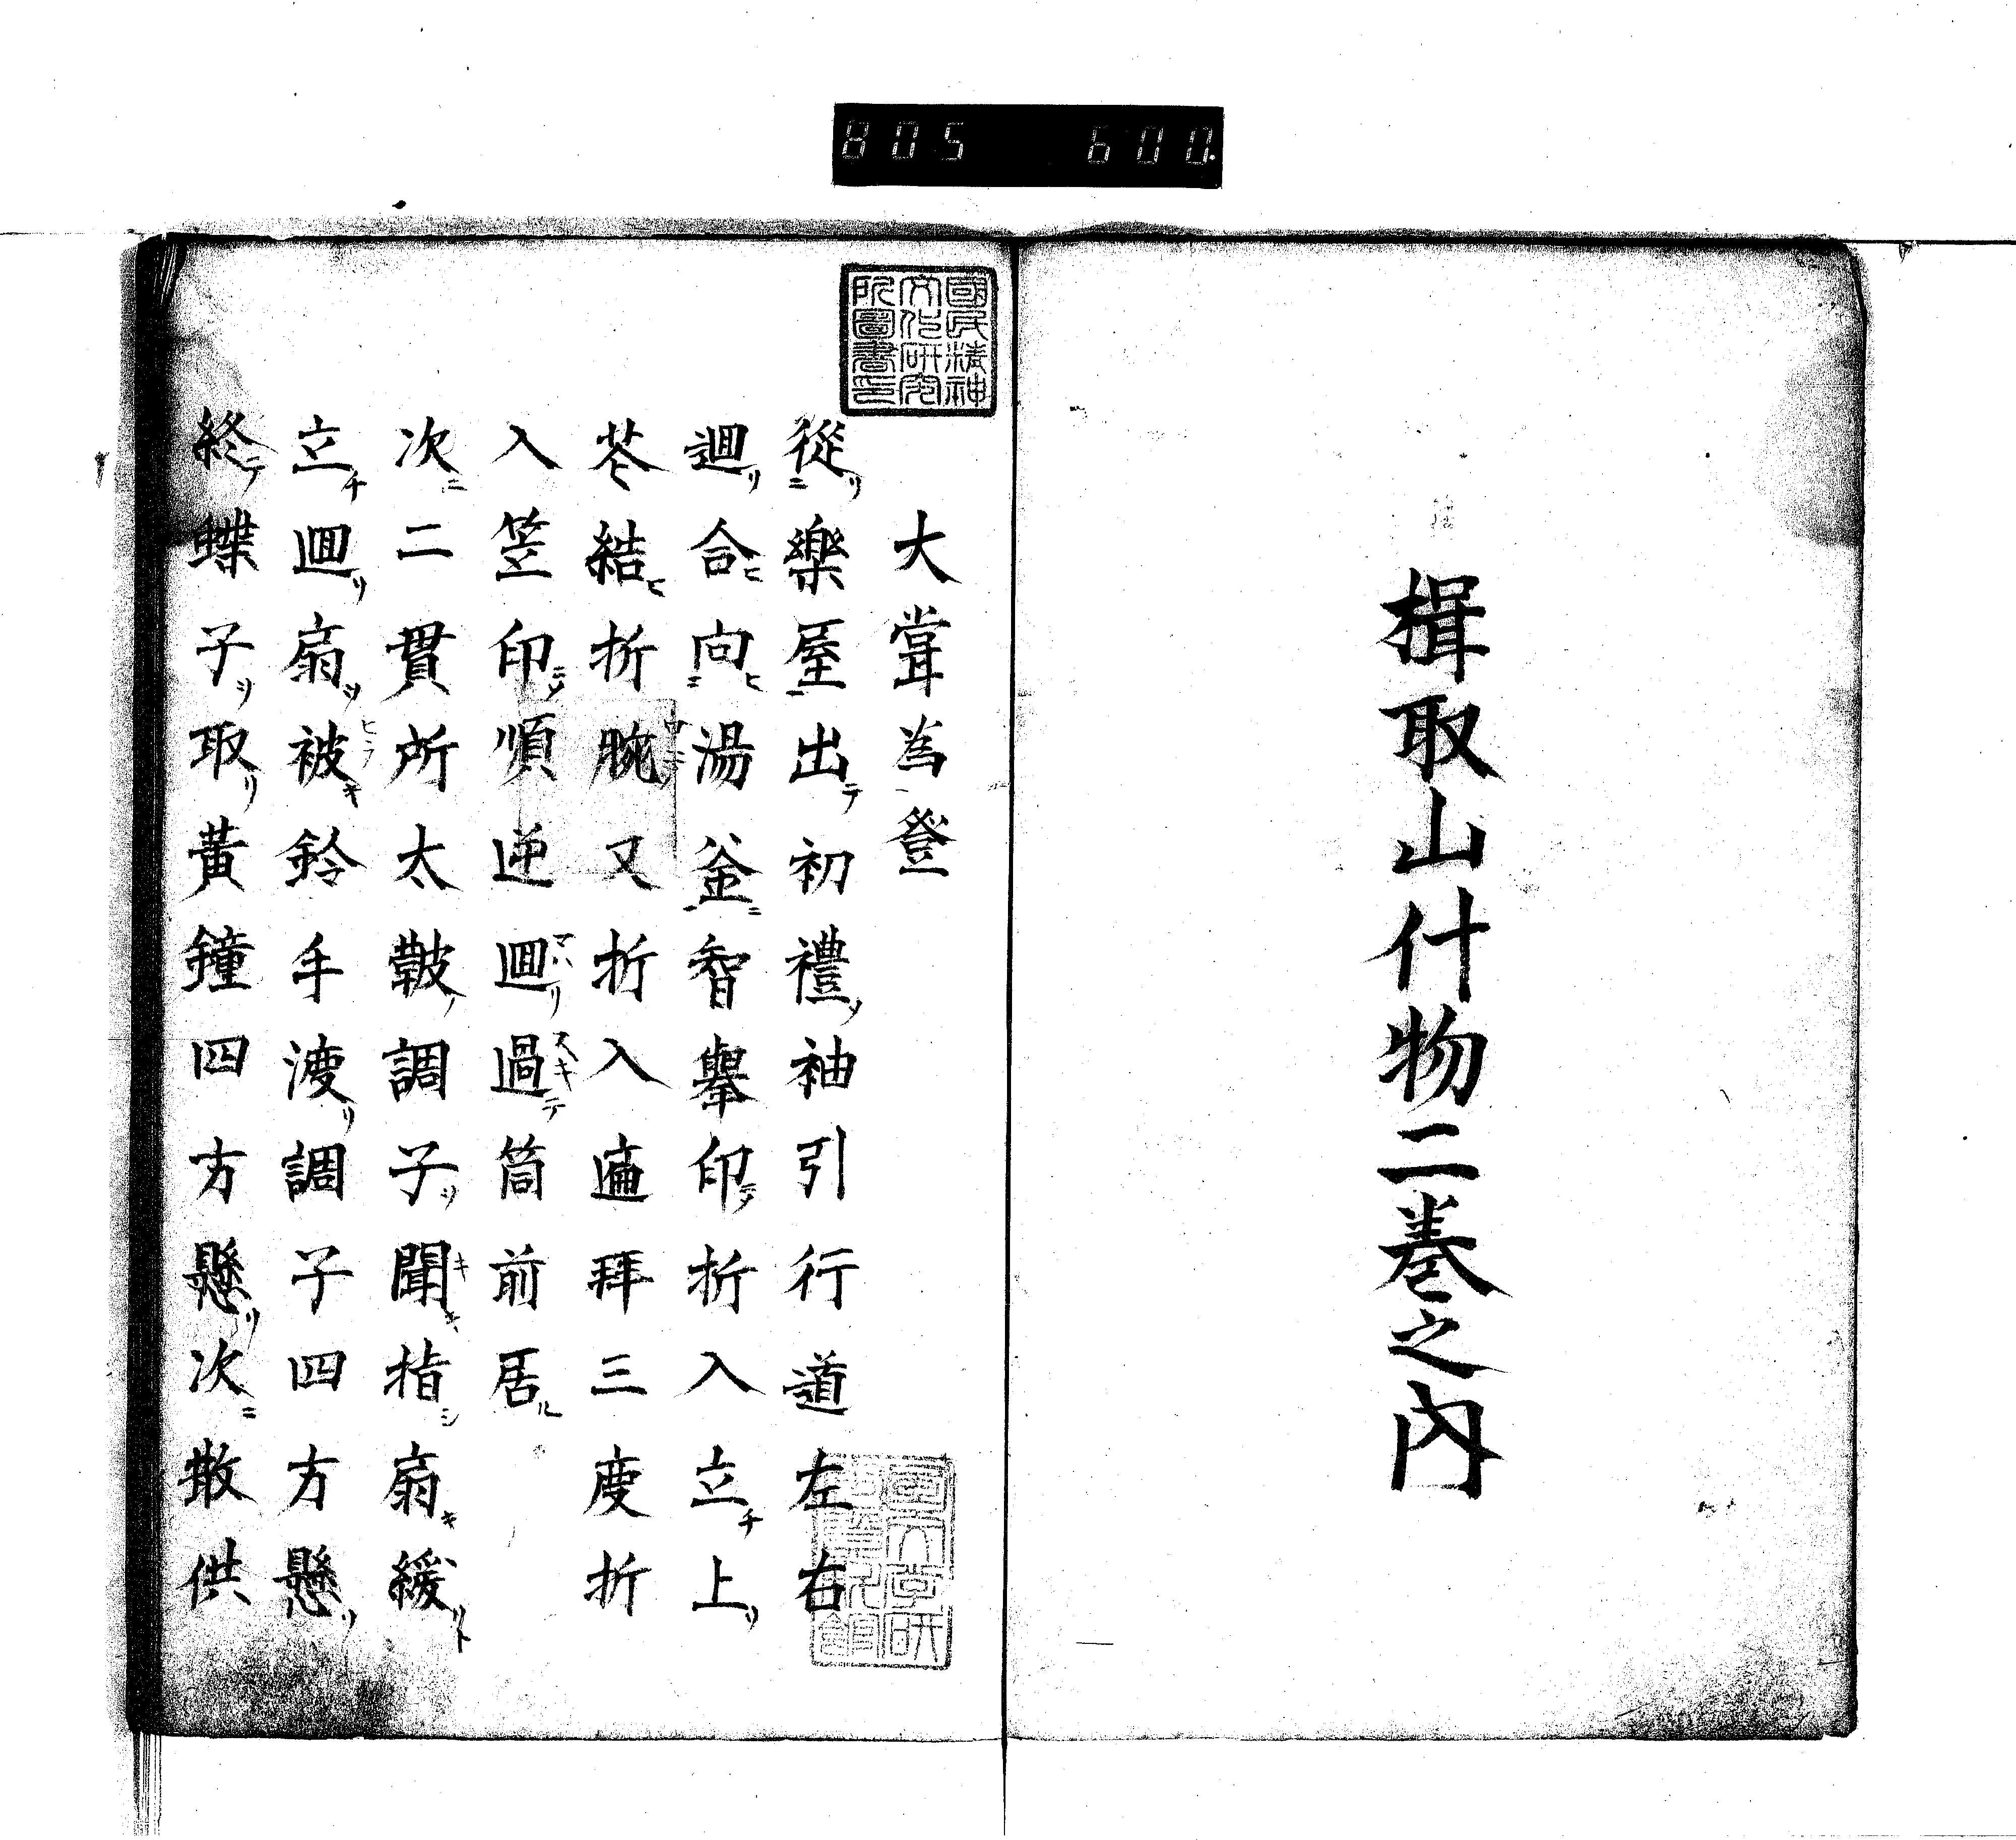 805 600
楫取山什物二巻之内
國民精神
文化研究
所圖書印
大甞為登
從リ二樂屋一出テ初禮ソ袖引行道左右
廻リ合ヒ向ヒ二湯釜一ニ智擧印テ折入立チ上リ
苍結ヒ折腕又折入遍拜三度折
入笠印ニソ順逆廻マハリ過スキテ筒前居ル
次ニ二貫所太鼓ノ調子ヲ聞キキ指シ扇キ緩リト
立チ廻リ扇ヲ被ヒラキ鈴手渡リ調子四方懸リ
終テ蝶子ヲ取リ黃鐘四方懸リ次ニ散供